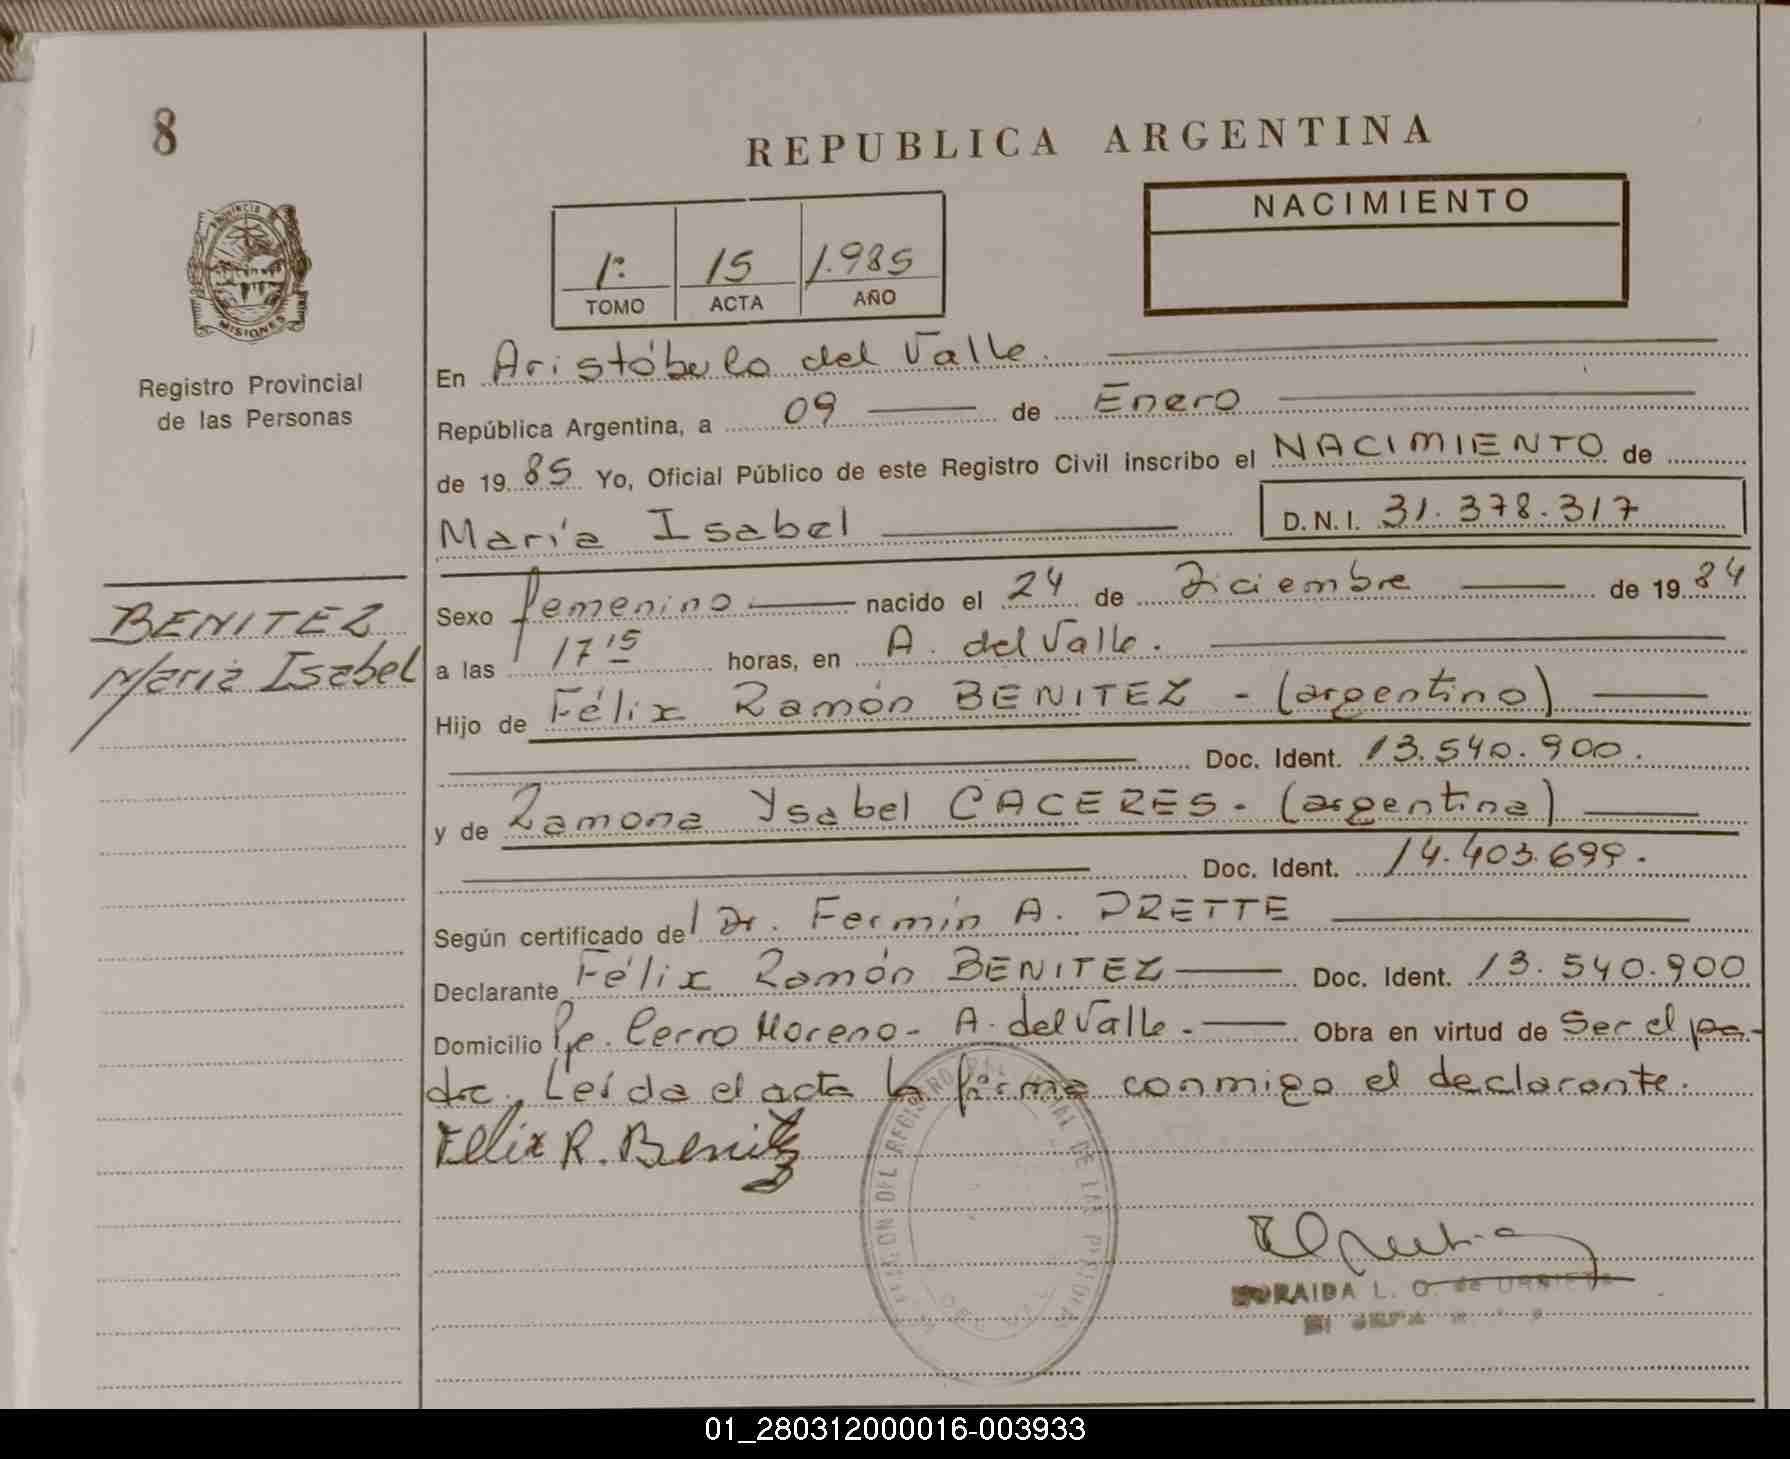 8
REPUBLICA ARGENTINA
NACIMIENTO
1º 15 1.985
TOMO ACTA AÑO
PROVINCIA DE
MISIONES
Registro Provincial
de las Personas
En Aristóbulo del Valle.
República Argentina, a 09 de Enero
de 19 85 Yo, Oficial Público de este Registro Civil inscribo el NACIMIENTO de
María Isabel D.N.I. 31.378.317
BENITEZ
María Isabel
Sexo femenino nacido el 24 de Diciembre de 19 84
a las 17 15 horas, en A. del Valle.
Hijo de Félix Ramón BENITEZ - (argentino)
Doc. Ident. 13.540.900.
y de Ramona Ysabel CACERES - (argentina)
Doc. Ident. 14.403.699.
Según certificado del Dr. Fermín A. PRETTE
Declarante Félix Ramón BENITEZ Doc. Ident. 13.540.900
Domicilio Pje. Cerro Moreno - A. del Valle. - Obra en virtud de Ser el pa-
dre. Leída el acta la firma conmigo el declarante.
Felix R. Benitez
DEL REGISTRO DE LAS
ORAIDA L. O. de URRIETA
01_280312000016-003933